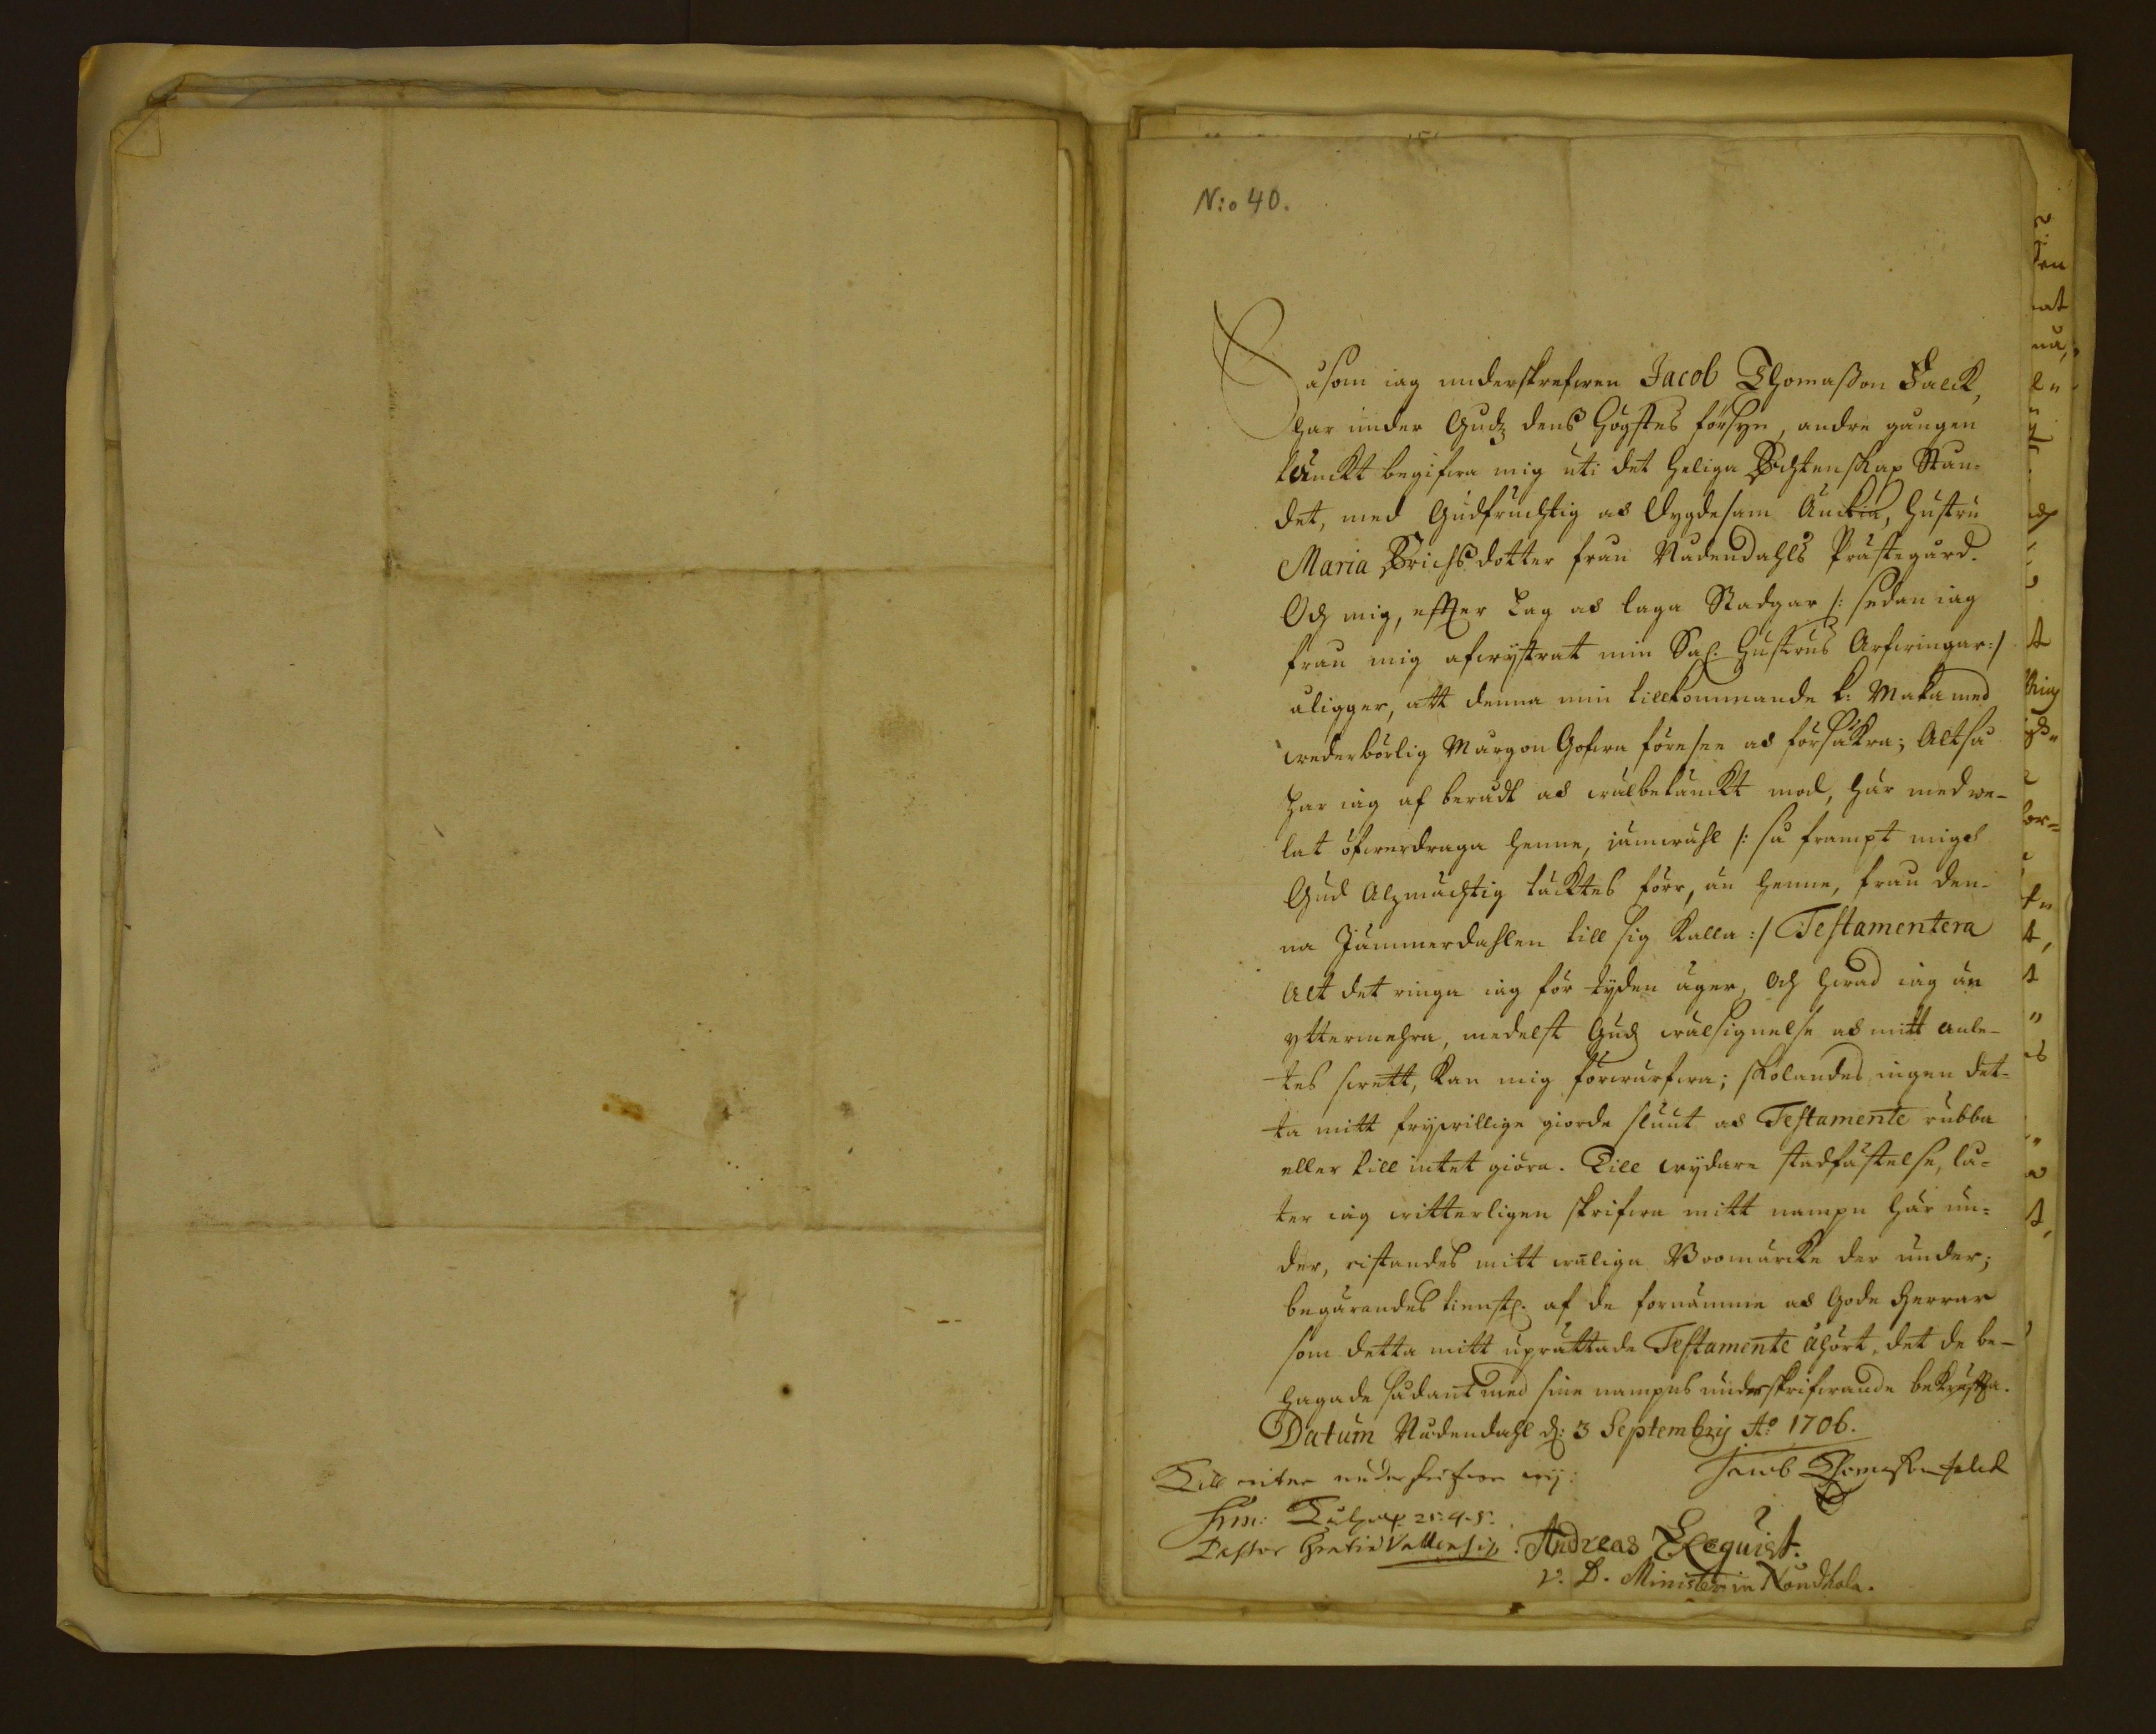 N:o 40.
Såsom iag underskrefwen Jacob Thomaßon Falck,
har under Gudz dens Högstes försyn, andre gången
tänckt begifwa mig uti det heliga Echtenskap Stån-
det, med Gudfruchtig as Dygdesam Änckia, hustru
Maria Erichsdotter från Nådendahls Prästegård.
Och mig, effter Lag as laga Stadgar /: sedan iag
från mig afwyttrat min Sal. hustrus Arfwingar:/
åligger, att denna min tillkommande k: Maka med
wederbörlig Morgon Gofwa förese as försäkra; Altså
har iag af berådt as wälbetänckt mod, här med we-
lat öfwerdraga henne, jämwähl /: så frampt mig
Gud Alzmächtig täcktes förr, än henne, från den-
na Jämmerdahlen till sig kalla :/ Testamentera
Alt det ringa iag för tyden äger, och hwad iag än
yttermehra, medelst Gudz wälsignelse as mitt anle-
tes swett, kan mig förwärfwa; skolandes ingen det-
ta mitt frywillige giorde sluut as Testamente rubba
eller till intet giöra. Till wydare stadfästelse, lå-
ter iag witterligen skrifwa mitt nampn här un-
der, ristandes mitt wanliga Boomärcke der under;
begärandes tienstl. af de fornämme as Gode Herrar
som detta mitt uprättade Testamente åhört, det de be-
hagade sådant med sine nampns underskrifwande bekräffta.
Datum Nådendahl d: 3 Septembrij Ao 1706.
Till witne underskrifwe wij: Jacob Thomasson falck
Pastor Gratiæ Vallensis. Andreas Exequist.
V. D. Minister in Nondhala.